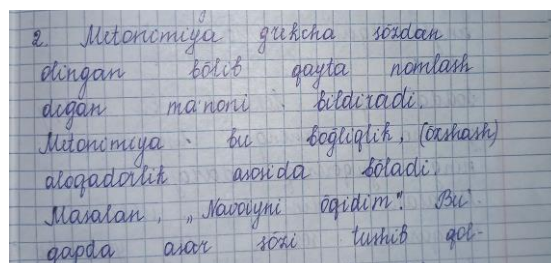 2. Metonimiya grekcha sózdan
olingan bólib qayta nomlash
degan ma'noni bildiradi.
Metonimiya - bu bogliqlik, (óxshash)
aloqadorlik asosida bóladi.
Masalan, „Navoiyni óqidim". Bu
gapda asar sózi tushib qol-